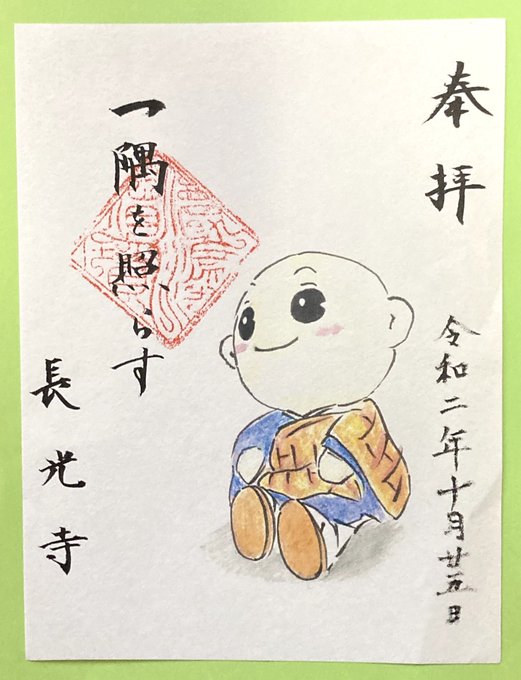 奉拝
令和二年十月廿五日
一隅を照らす
長光寺